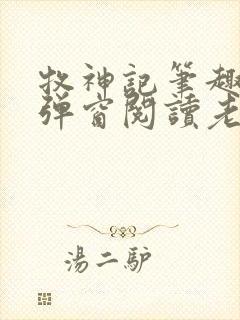 牧神記筆趣
弹窗閱讀老
湯二驴